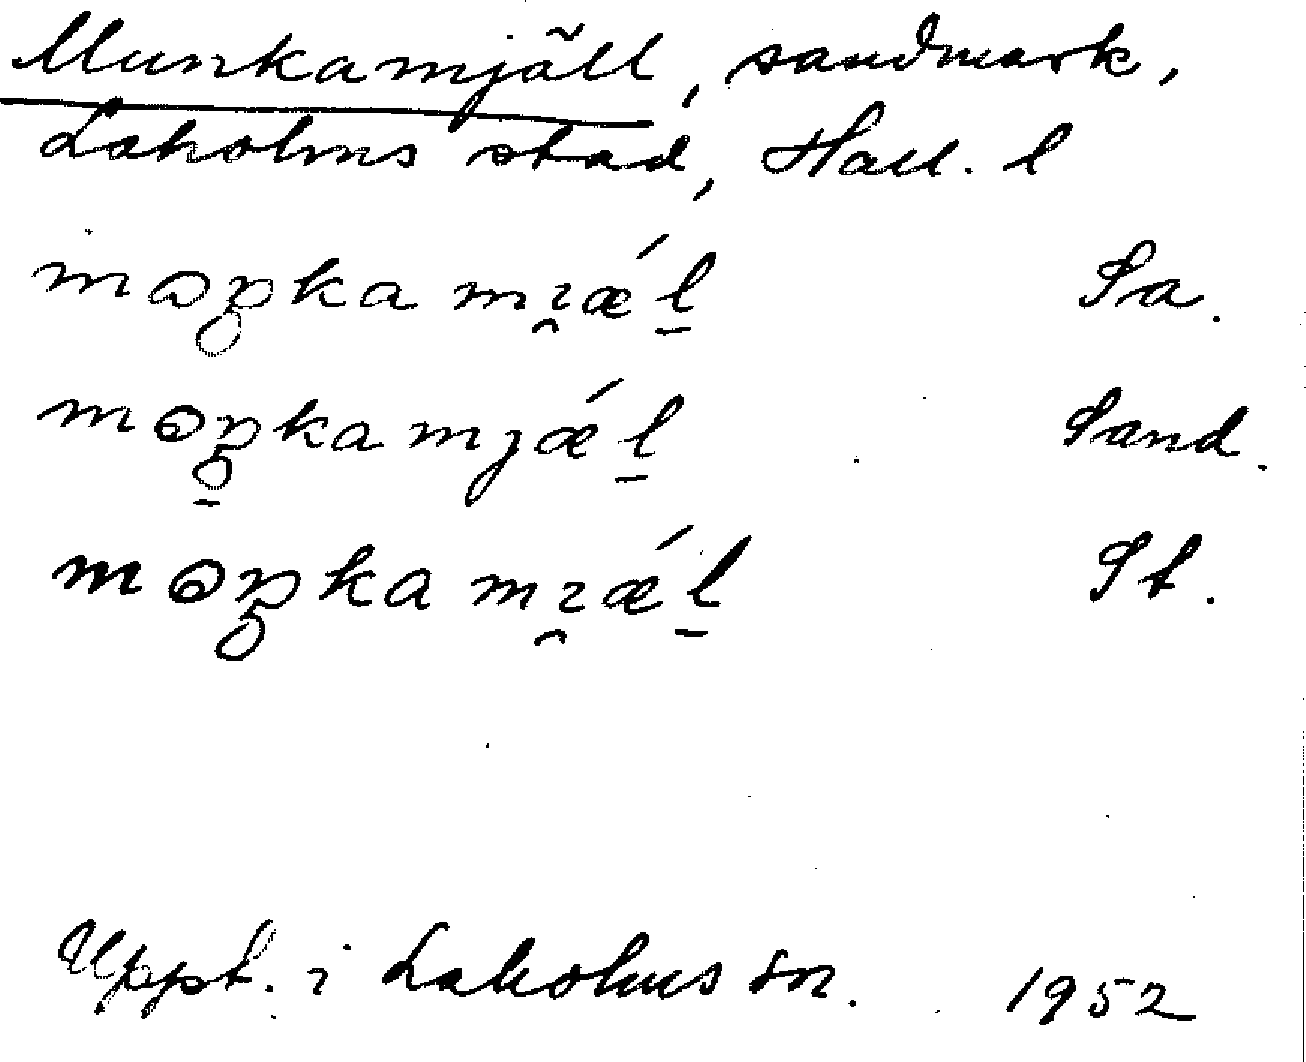 Munkamjäll, sandmark,
Laholms stad, Hall. l
məŋkamɿǽl̠ Sa.
məŋkamjǽl̠ Sand.
məŋkamɿǽl̠ St.
Uppt. i Laholms sn. 1952